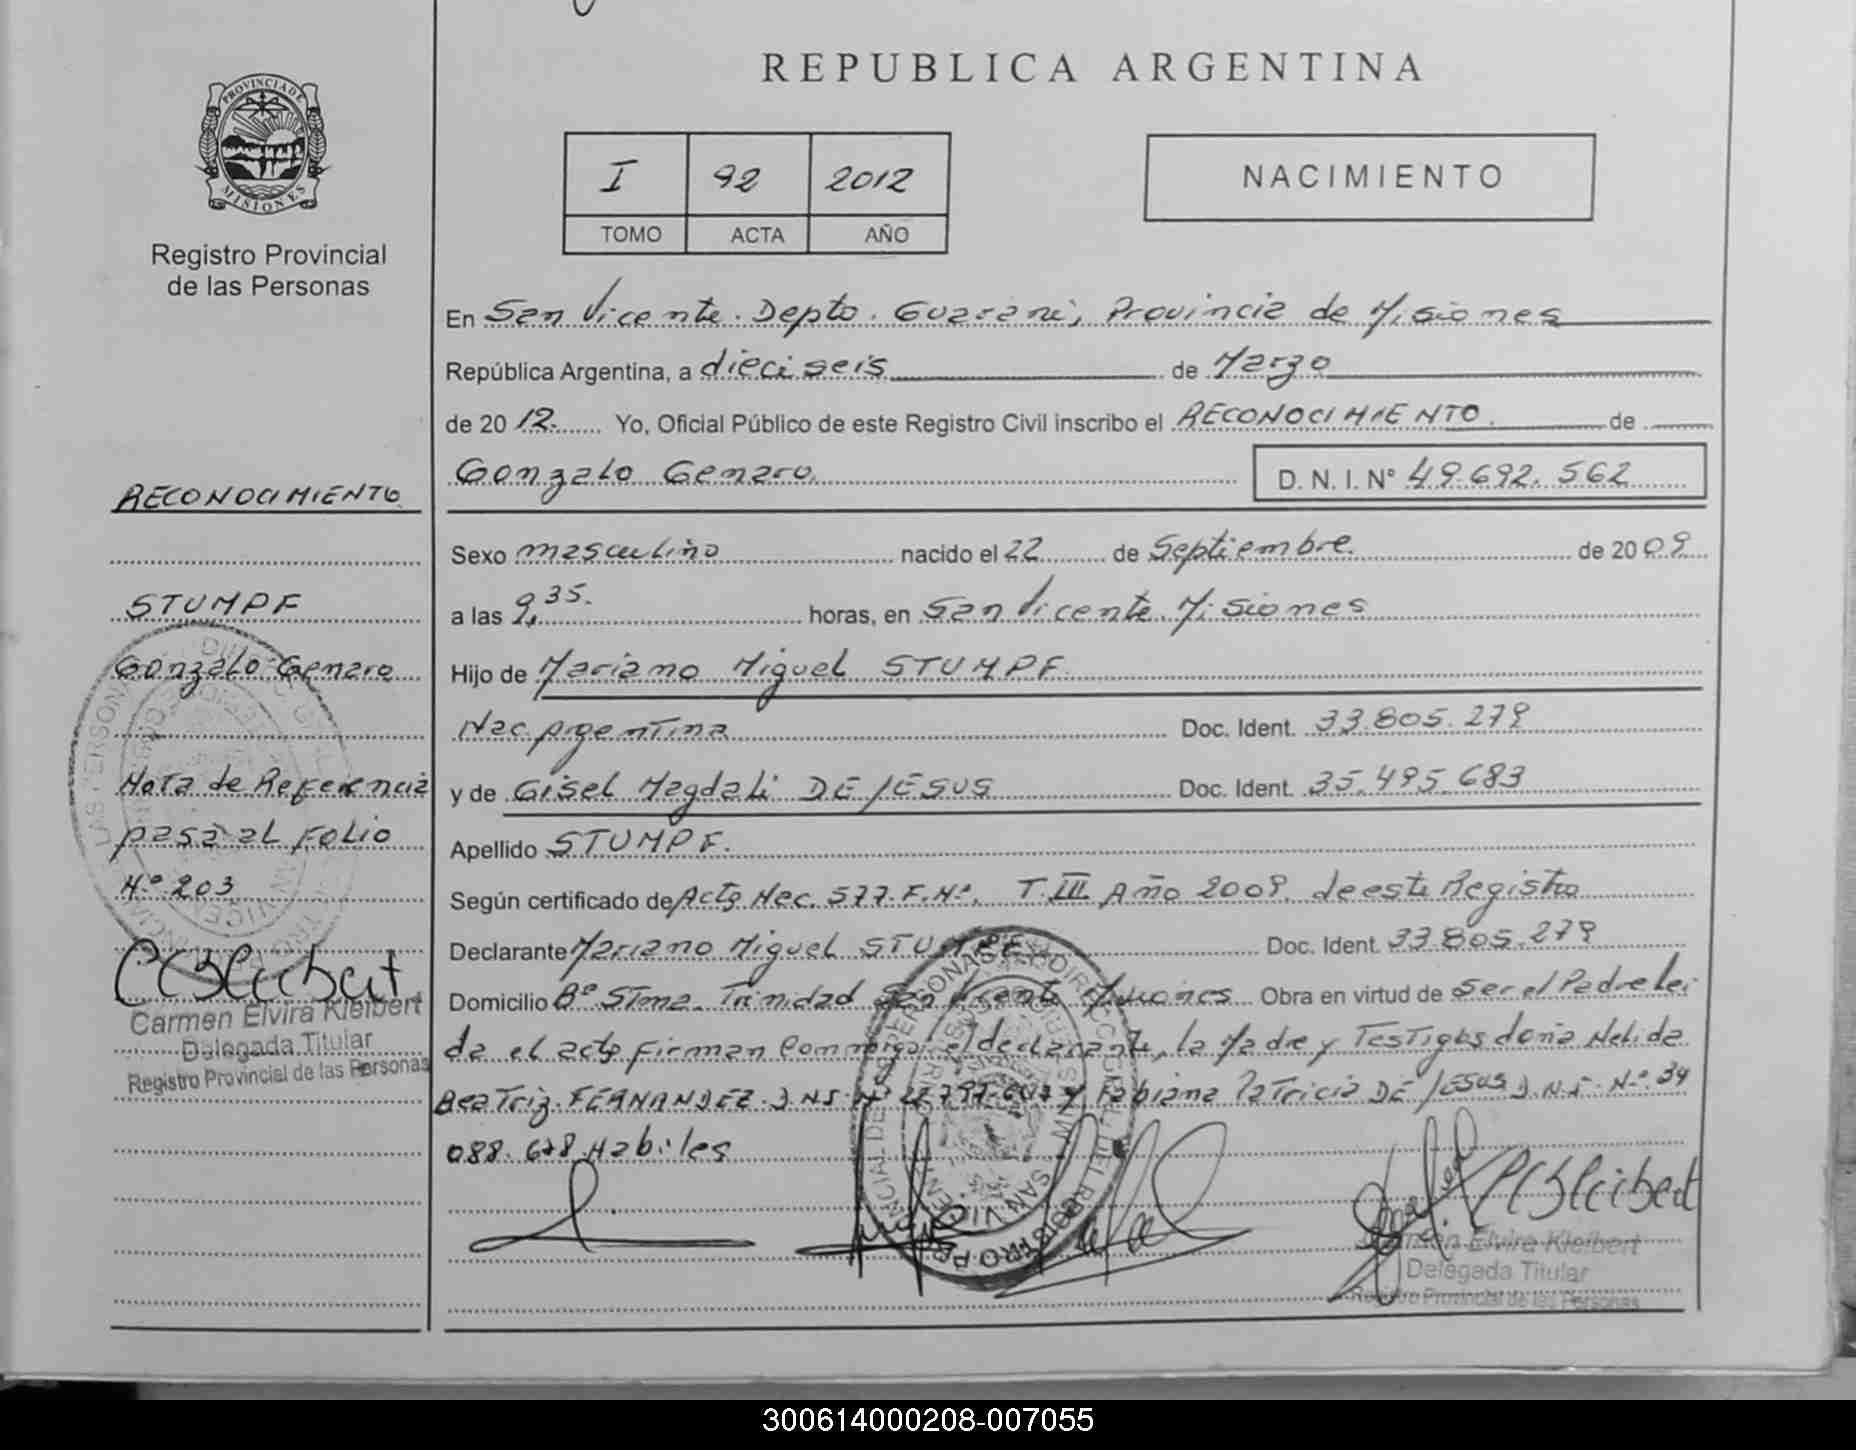 REPUBLICA ARGENTINA
PROVINCIA DE MISIONES
Registro Provincial
de las Personas
I 92 2012
TOMO ACTA AÑO
NACIMIENTO
En San Vicente. Depto. Guarani, Provincia de Misiones
República Argentina, a dieciseis de Marzo
de 2012. Yo, Oficial Público de este Registro Civil inscribo el RECONOCIMIENTO. de
Gonzalo Genaro. D. N. I. Nº 49.692.562
Sexo masculino nacido el 22 de Septiembre. de 2009
a las 9,35. horas, en San Vicente. Misiones
Hijo de Mariano Miguel STUMPF.
Nac. Argentina Doc. Ident. 33.805.279
y de Gisel Magdali DE JESUS Doc. Ident. 35.495.683
Apellido STUMPF.
Según certificado de Acta Nac. 577. F.Nº. T. III Año 2009. de este Registro
Declarante Mariano Miguel STUMPF Doc. Ident. 33.805.279
Domicilio Bº Stma. Trinidad San Vicente Misiones Obra en virtud de Ser el Padre lei
da el acto firman conmigo el declarante, la Madre y Testigos doña Nelida
Beatriz FERNANDEZ D.N.I. Nº y Fabiana Patricia DE JESUS D.N.I. Nº. 34
088.678 Habiles
RECONOCIMIENTO.
STUMPF
Gonzalo Genaro
Nota de Referencia
pasa al FOLIO
Nº 203
CEKleibert
Carmen Elvira Kleibert
Delegada Titular
Registro Provincial de las Personas
CEKleibert
Carmen Elvira Kleibert
Delegada Titular
Registro Provincial de las Personas
300614000208-007055